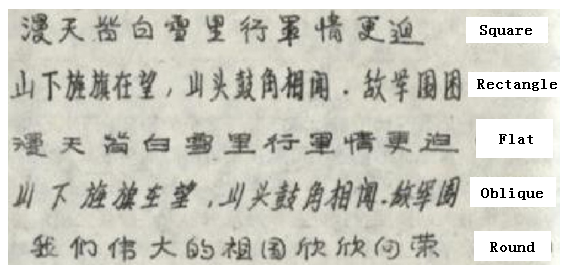 漫天皆白雪里行軍情更迫 Square
山下旌旗在望，山头鼓角相闻．敌军围困 Rectangle
漫天皆白雪里行軍情更迫 Flat
山下旌旗在望，山头鼓角相闻．敌军围 Oblique
我们伟大的祖国欣欣向荣 Round